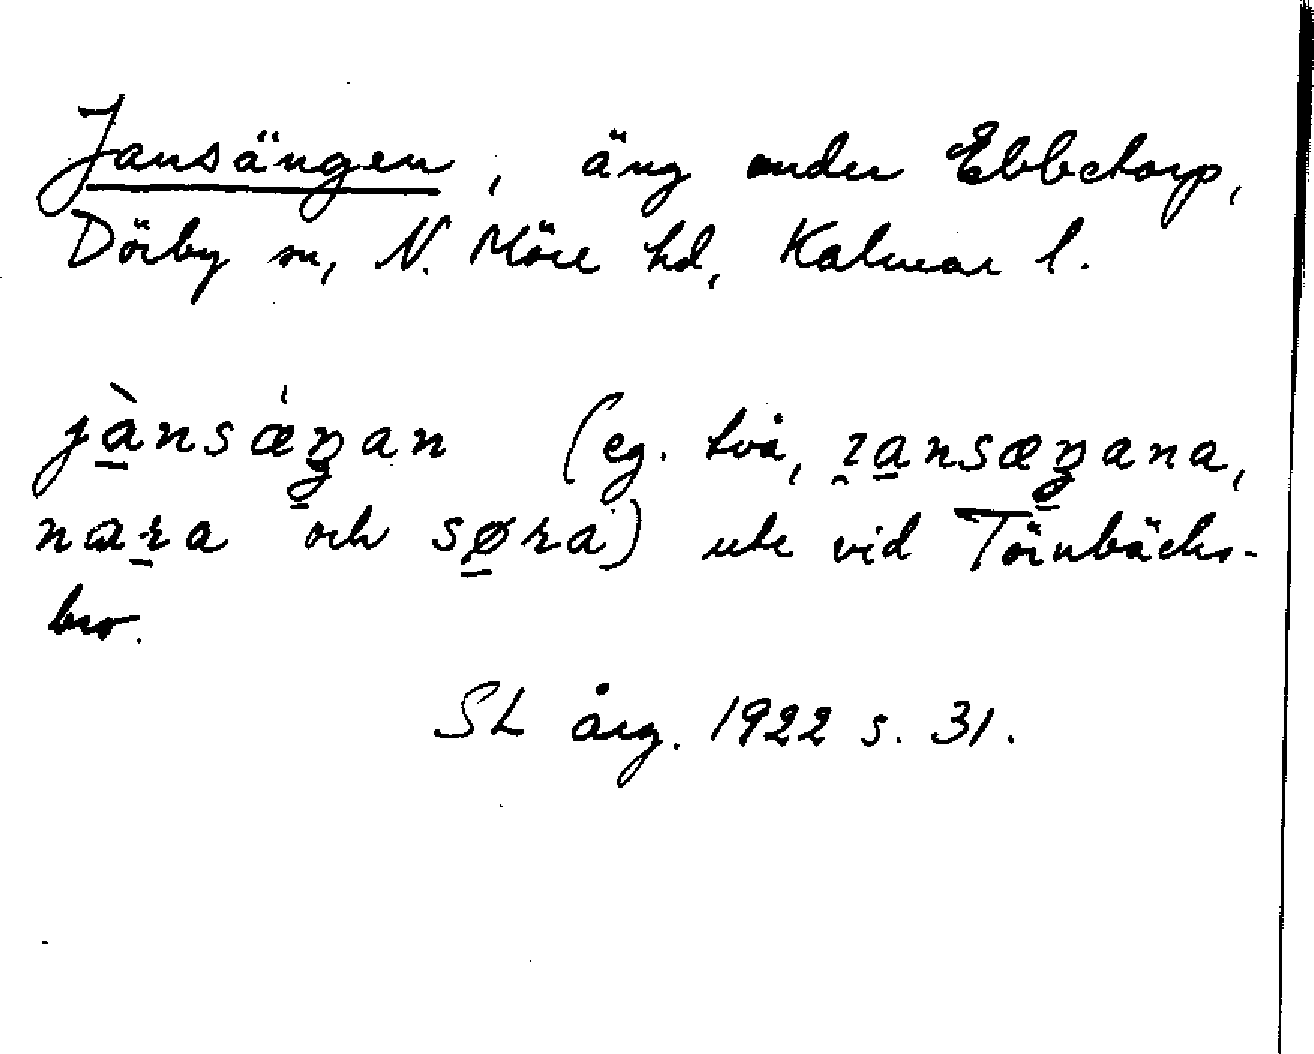 Jansängen, äng under Ebbetorp,
Dörby sn, N. Möre hd, Kalmar l.
jànsǽŋan (eg. två, jansæŋana,
næra och søra) ute vid Törnbäcks-
bro.
SL årg. 1922 s. 31.